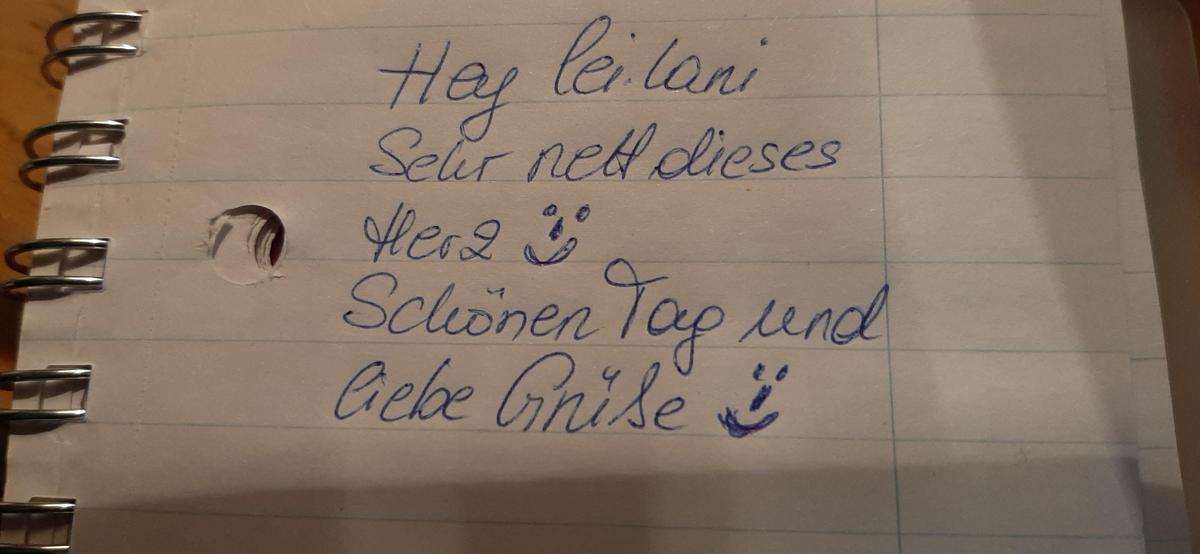 Hey leilani
Sehr nett dieses
Herz
Schönen Tag und
liebe Grüße